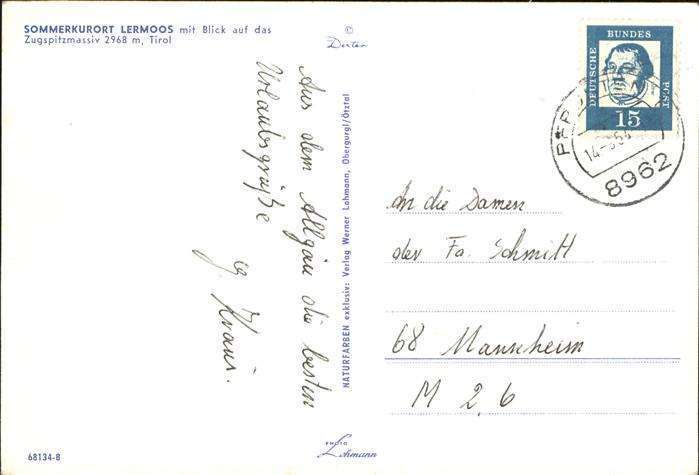 SOMMERKURORT LERMOOS mit Blick auf das
Zugspitzmassiv 2968 m, Tirol
©
Aus dem Allgäu die besten
Urlaubsgrüße
Kraus.
NATURFARBEN exklusiv: Verlag Werner Lohmann, Obergurgl/Ötztal
DEUTSCHE BUNDES POST
15
8962
An die Damen
der Fa. Schmitt
68 Mannheim
M 2, 6
68134-8
Lohmann